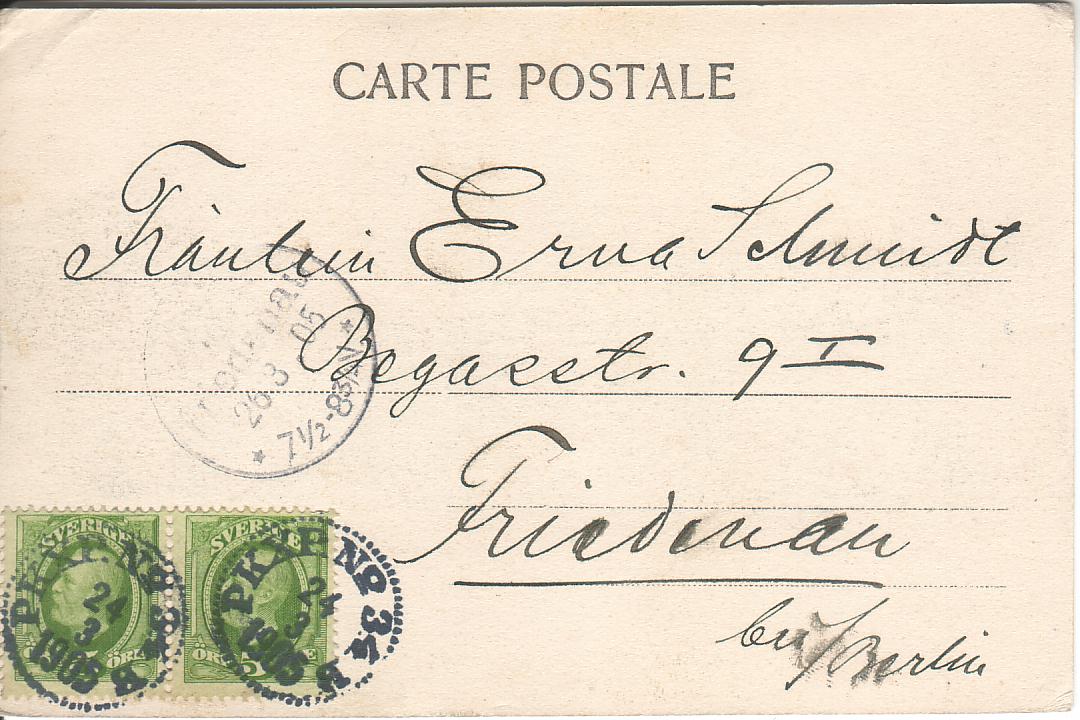 CARTE POSTALE
Fräulein Erna Schmidt
Begasstr. 9 I
Friedenau
bei/Berlin
Friedenau
26.3 05
* 7½-8¾N *
SVERIGE
SVERIGE
ÖRE
5
PKXP. No 34 B
24
3
1905
PKXP. No 34 B
24
3
1905